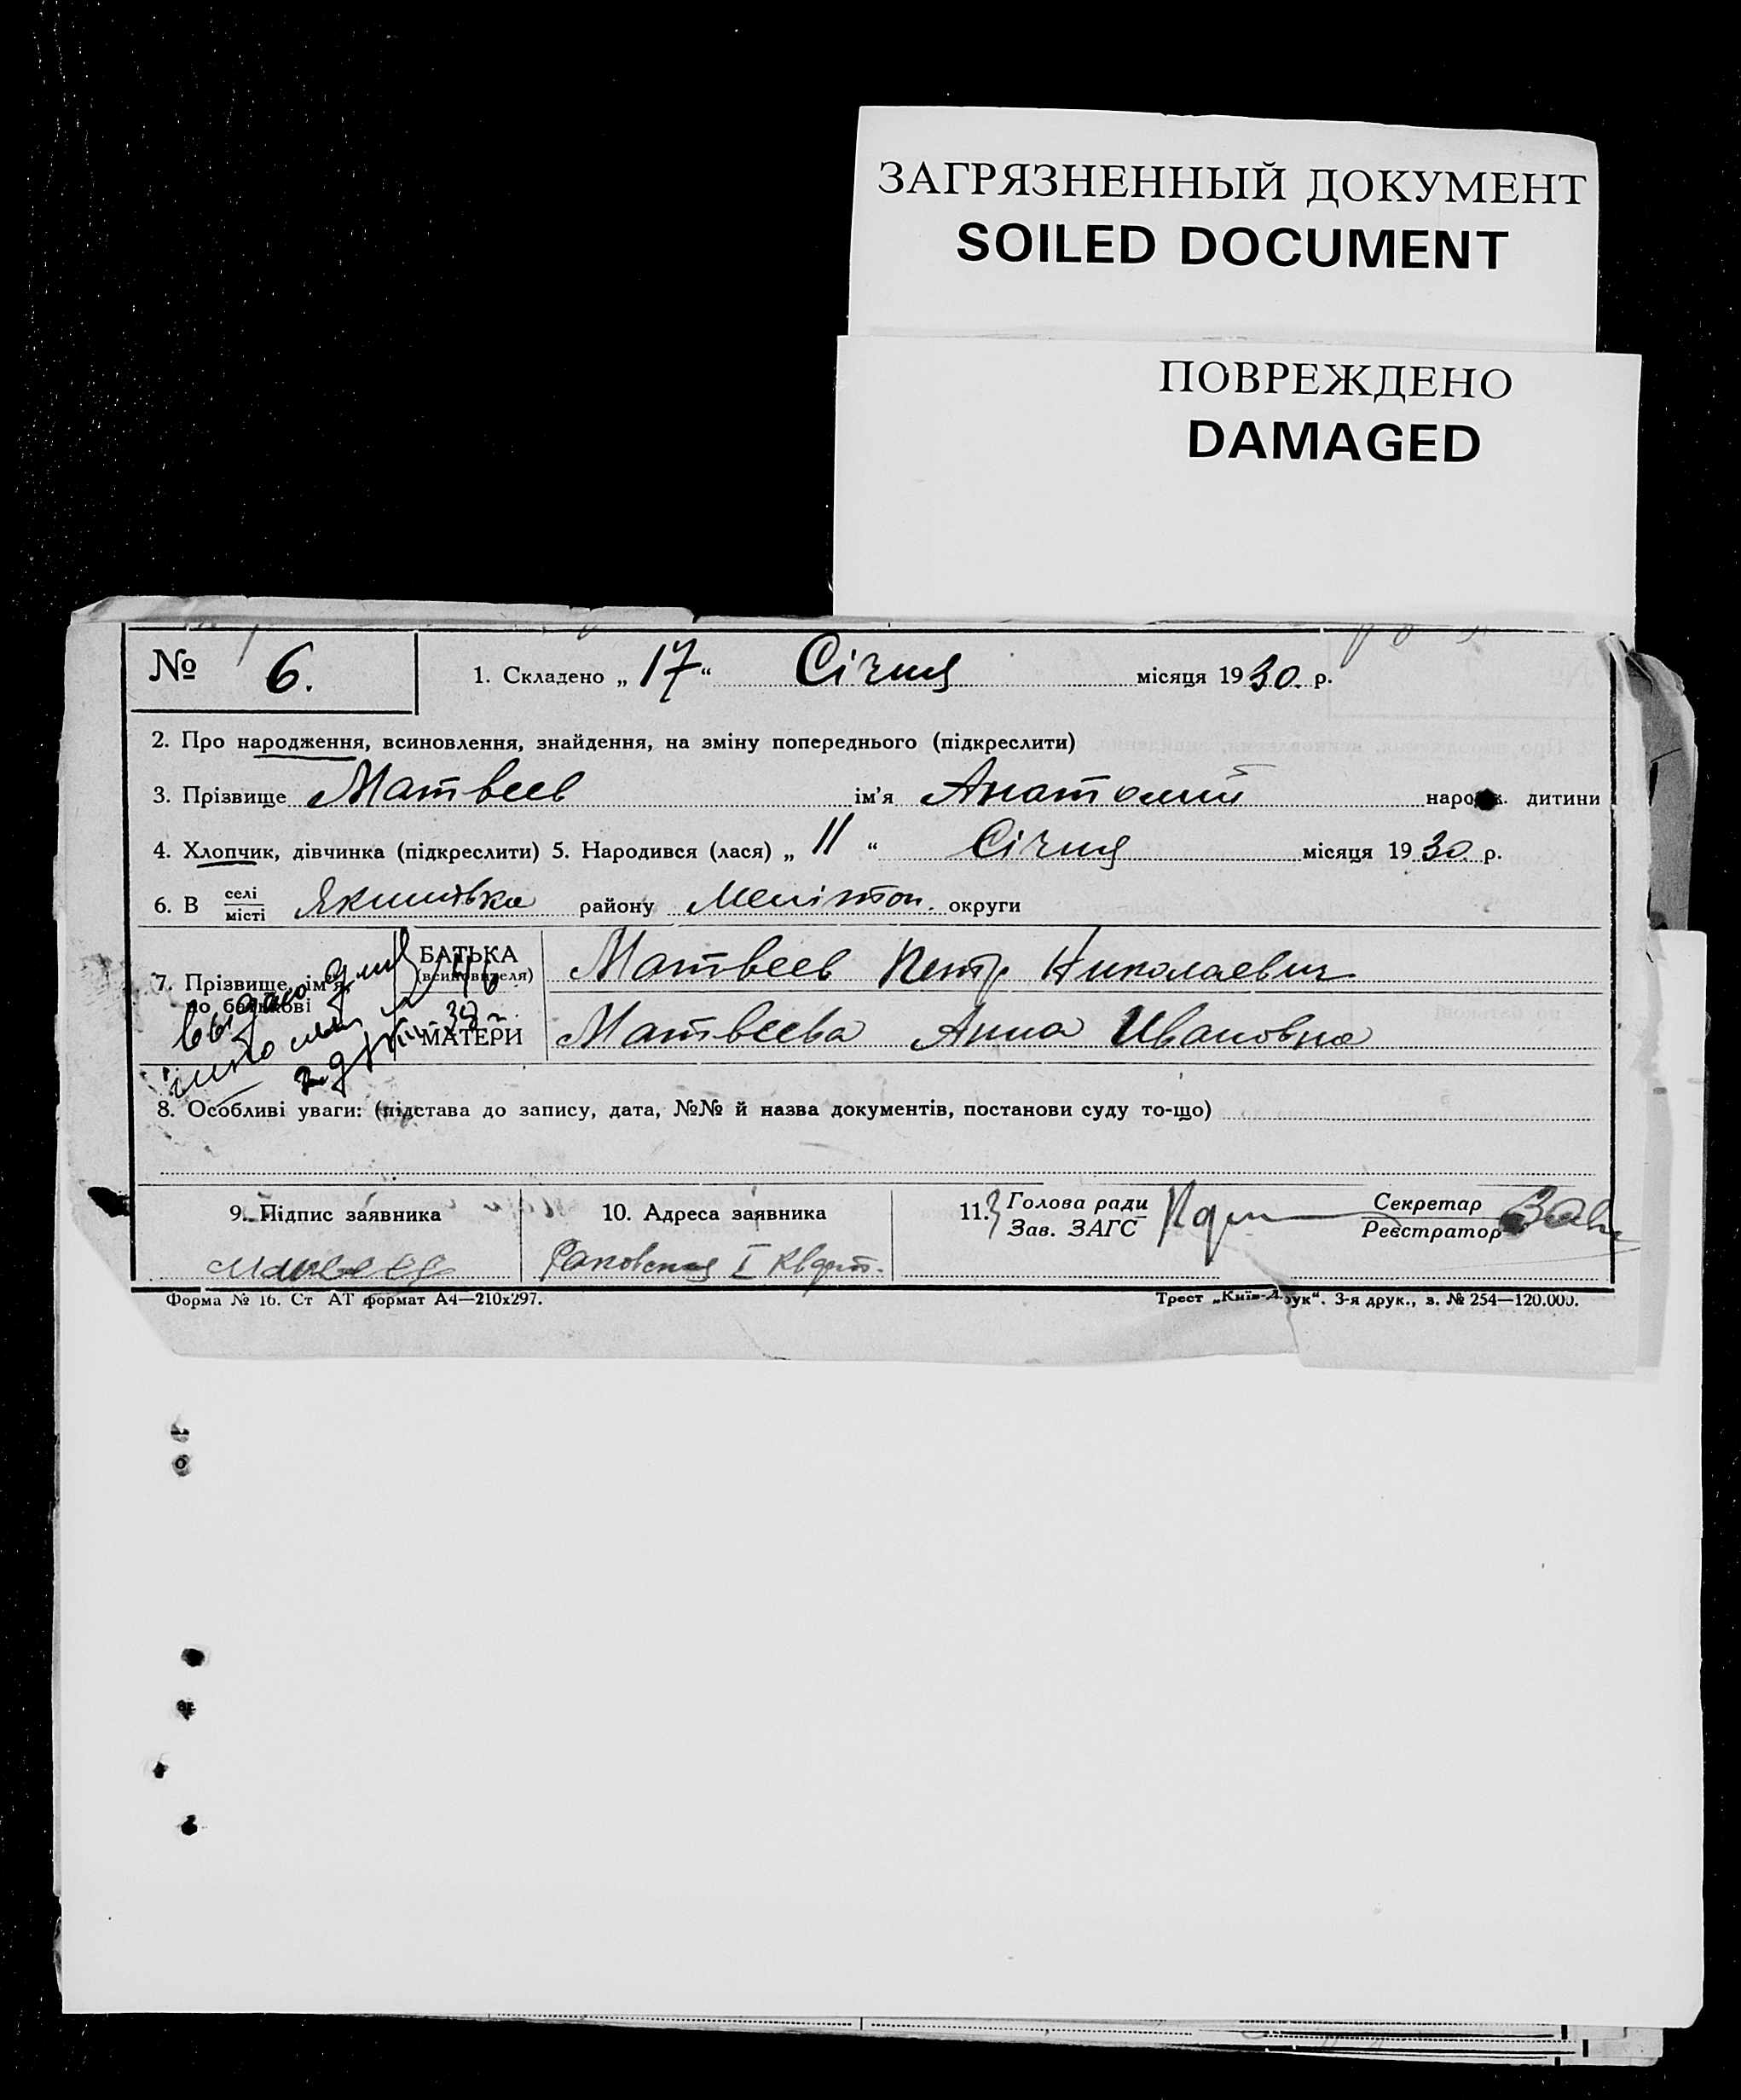 ЗАГРЯЗНЕННЫЙ ДОКУМЕНТ
SOILED DOCUMENT
ПОВРЕЖДЕНО
DAMAGED
№ 6. 1. Складено „17“ Січня місяця 1930. р.
2. Про народження, всиновлення, знайдення, на зміну попереднього (підкреслити)
3. Прізвище Матвеев ім'я Анатолий народж. дитини
4. Хлопчик, дівчинка (підкреслити) 5. Народився (лася) „11“ Січня місяця 1930. р.
6. В селі місті Якимівка району Мелітоп. округи
7. Прізвище, ім'я, по батькові
БАТЬКА (всиновителя) Матвеев Петр Николаевич
МАТЕРИ Матвеева Анна Ивановна
выдано для школы
8. Особливі уваги: (підстава до запису, дата, №№ й назва документів, постанови суду то-що)
9. Підпис заявника 10. Адреса заявника 11. Голова ради Секретар
Зав. ЗАГС Реєстратор
Матвеев Раковская I
Форма № 16. Ст АТ формат А4—210х297. Трест „Київ-Друк“. 3-я друк., з. № 254—120.000.